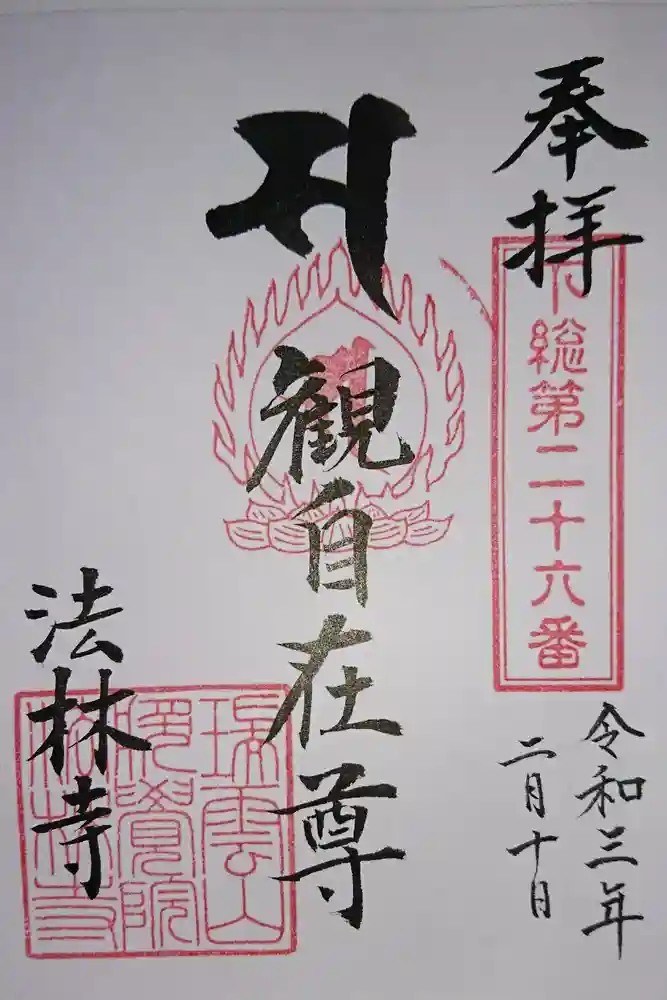 奉拝
下総第二十六番
令和三年
二月十日
観自在尊
法林寺
瑞雲山
法林寺